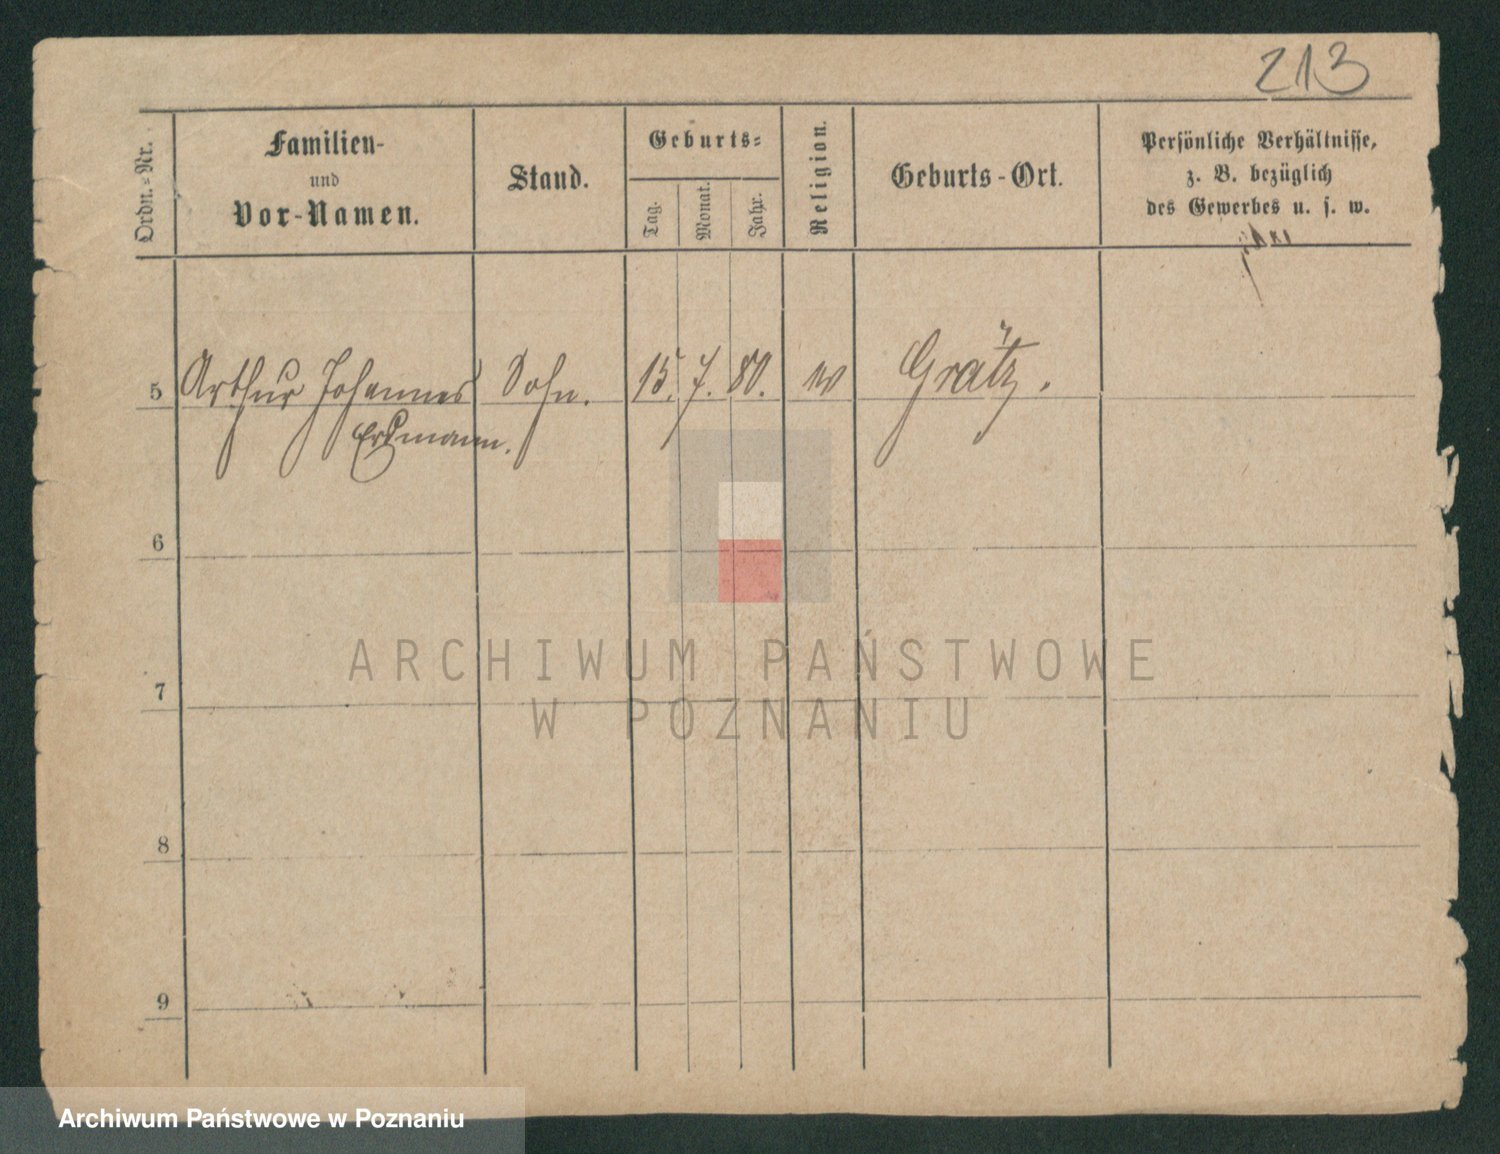 213
Ordn.-Nr.
Familien-
und
Vor-Namen.
Stand.
Geburts-
Tag.
Monat.
Jahr.
Religion.
Geburts-Ort.
Persönliche Verhältnisse,
z. B. bezüglich
des Gewerbes u. s. w.
5 Arthur Johannes Sohn. 15. 7. 80. Grätz.
Erdmann.
6
ARCHIWUM PAŃSTWOWE
7
W POZNANIU
8
9
Archiwum Państwowe w Poznaniu